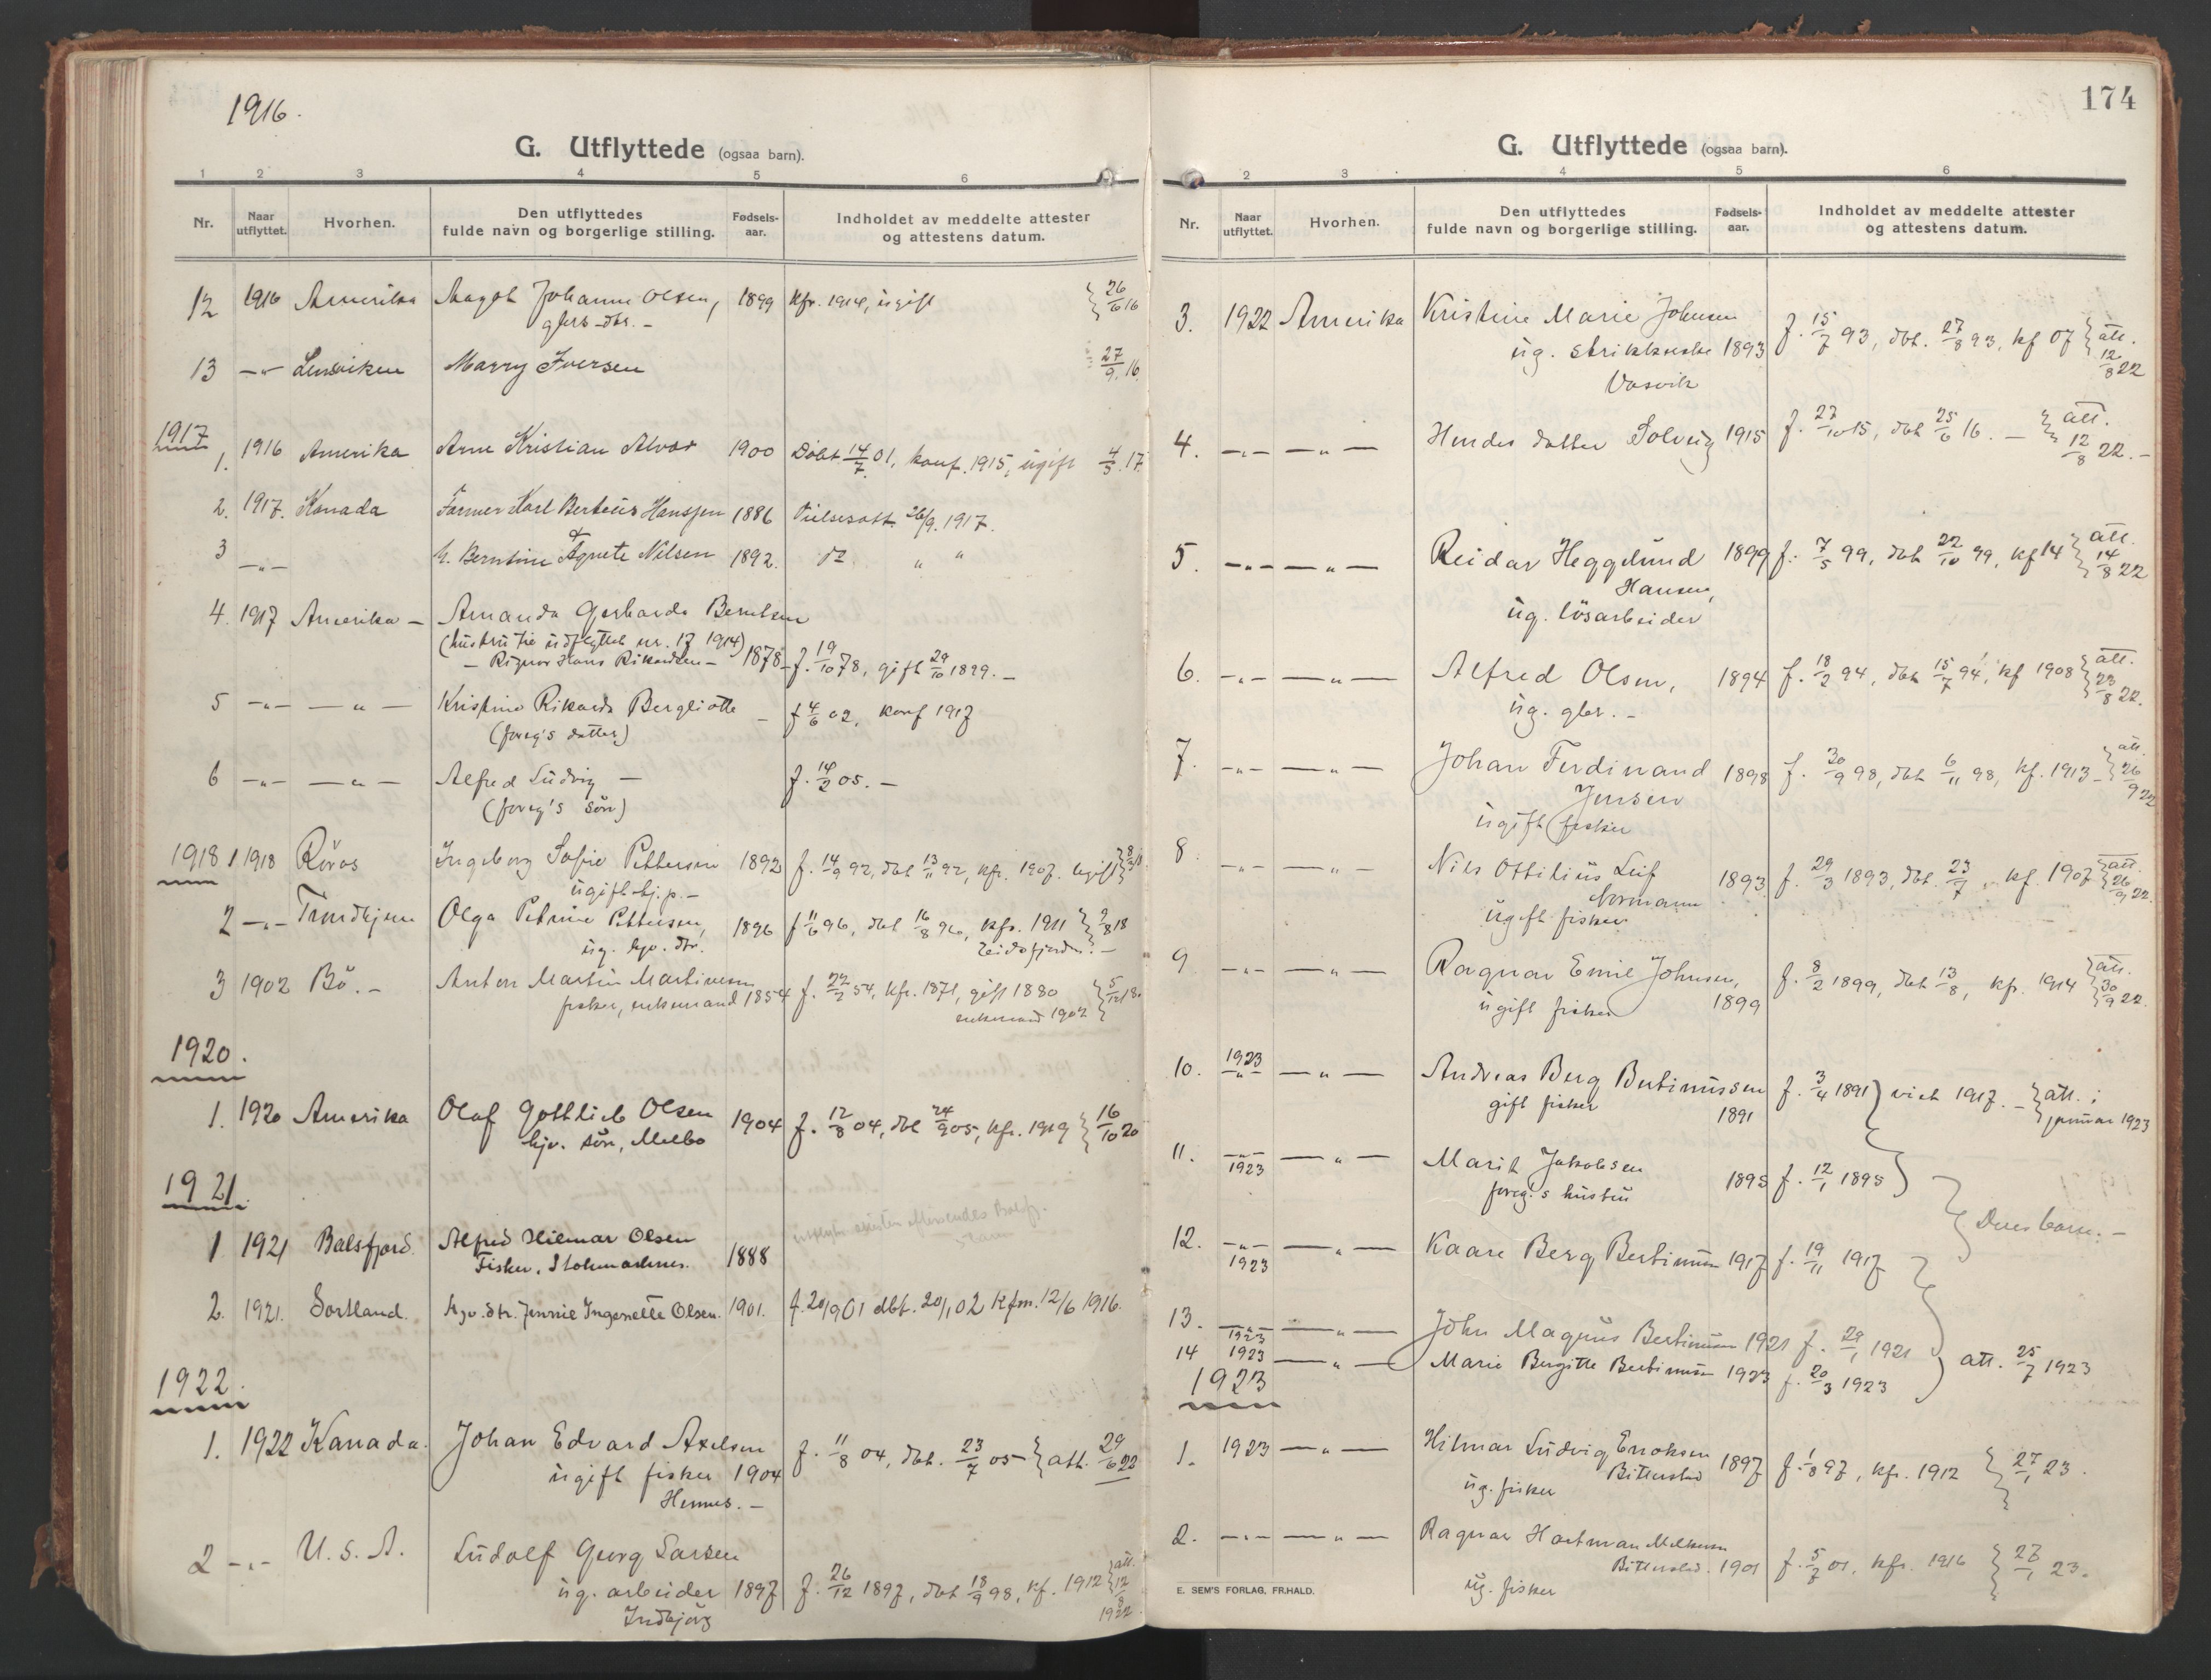 1916.
G. Utflyttede (ogsaa barn).
1 2 3 4 5 6
Nr. Naar utflyttet. Hvorhen. Den utflyttedes fulde navn og borgerlige stilling. Fødsels-aar. Indholdet av meddelte attester og attestens datum.
12 1916 Amerika Johanne Olsen, 1899 kfr. 1914, ugift } 26/6 16
gbrs-dtr. -
13 -"- Lenviken Marry Iversen 27/9. 16.
1917
1. 1916 Amerika Arne Kristian 1900 Döbt 14/7 01, konf. 1915, ugift 4/5. 17.
2. 1917. Kanada Farmer Karl Berteus Hanssen 1886 26/9. 1917.
&
3 -"- h. Berntine Agnete Nilsen 1892. do. " "
4. 1917 Amerika - Amanda Gerharda Berntsen
(hustru til udflyttet nr. 17 1914)
- Hans Rikardsen - 1878 - f. 19/10 78, gift 29/10 1899. -
5 -"- -"- Kristine Rikarda Bergliotte - f 4/6 02, konf 1917
(foreg's datter)
6 -"- -"- Alfred Ludvig - f. 14/2 05. -
(foreg's sön)
1918 1 1918 Röros Ingeborg Sofie Pettersen 1892 f. 14/9 92, dbt 13/11 92, kfr. 1907. ugift
ugift tj.p. -
2 -"- Trondhjem Olga Petrine Pettersen, 1896 f 11/6 96, dbt 16/8 96, kfr. 1911 } 2/8 18
ug. hjv. dtr. Eidsfjorden. -
3 1902 Bö. - Anton Martin Martinesen
fisker, enkemand 1854 f. 22/2 54, kfr. 1871, gift 1880 } 5/12 18.
enkemand 1902
1920.
1. 1920 Amerika Olaf Gotthlieb Olsen 1904 f. 12/8 04, dbt 24/9 05, kfr. 1919 } 16/10 20
hjv. sön, Melbo
1921.
1 1921 Balsfjord. Alfred Hilmar Olsen
Fisker, Stokmarknes. 1888
2. 1921. Sortland. hjv. dtr. Jennie Ingenette Olsen. 1901. f. 20/9 01 dbt. 20/1 02 Kfm. 12/6 1916.
1922.
1. 1922 Kanada. Johan Edvard Axelsen f. 11/8 04, dbt. 23/7 05 } att. 29/6 22
ugift fisker 1904
Hennes. -
2 -"- U.S.A. Ludolf Georg Larsen
ug. arbeider 1897 f. 26/12 1897, dbt 18/9 98, kf. 1912 } att. 12/8 1922.
Indbjörg
174
G. Utflyttede (ogsaa barn).
2 3 4 5 6
Nr. Naar utflyttet. Hvorhen. Den utflyttedes fulde navn og borgerlige stilling. Fødsels-aar. Indholdet av meddelte attester og attestens datum.
3. 1922 Amerika Kristine Marie Johnsen
ug. strikkerske 1893 f. 15/7 93, dbt. 27/8 93, kf 07 } att. 12/8 22
Vasvik
4. -"- -"- Hendes datter Solveig 1915 f. 27/10 15, dbt 25/6 16. - } att. 12/8 22. -
5. -"- -"- Reidar Heggelund 1899 f. 7/5 99, dbt 22/10 99, kf 14 } att. 14/8 22
Hansen,
ug. lösarbeider
6. -"- -"- Alfred Olsen, 1894 f. 18/2 94, dbt 15/7 94, kf 1908 } att. 23/8 22.
ug. gbr. -
7. -"- -"- Johan Ferdinand 1898 f. 30/9 98, dbt 6/11 98, kf. 1913 - } att. 26/9 22
Jensen
ugift fisker
8. -"- -"- Nils Ottilius Leif 1893 f. 29/3 1893, dbt. 23/7 " kf. 1907 } att. 26/9 22.
Normann
ugift fisker
9 -"- -"- Ragnar Emil Johnsen, f. 8/2 1899, dbt 13/8, kfr. 1914 } att. 30/9 22.
ugift fisker 1899
10. 1923 -"- -"- Andreas Berg Bertinussen f. 3/4 1891 } viet 1917. - } att. i januar 1923
gift fisker 1891
11. -"- 1923 -"- Marit Jakobsen
foreg.'s hustru 1895 f. 12/1 1895
Deres barn. -
12. -"- 1923 -"- Kaare Berg Bertinussen 1917 f. 19/11 1917
13. -"- 1923 -"- John Magnus Bertinussen 1921 f. 29/1 1921
14 1923 -"- Marie Bergitte Bertinussen 1923 f. 20/3 1923 } att. 25/7 1923
1923
1. 1923 -"- Hilmar Ludvig Enoksen 1897 f. 1/8 97, kfr. 1912 } 27/1 23.
ug. fisker Bitterstad
2. -"- -"- Ragnar Hartman
Bitterstad. 1901 f. 5/7 01, kfr. 1916 } 27/1 23.
ug. fisker
E. SEM'S FORLAG, FR.HALD.